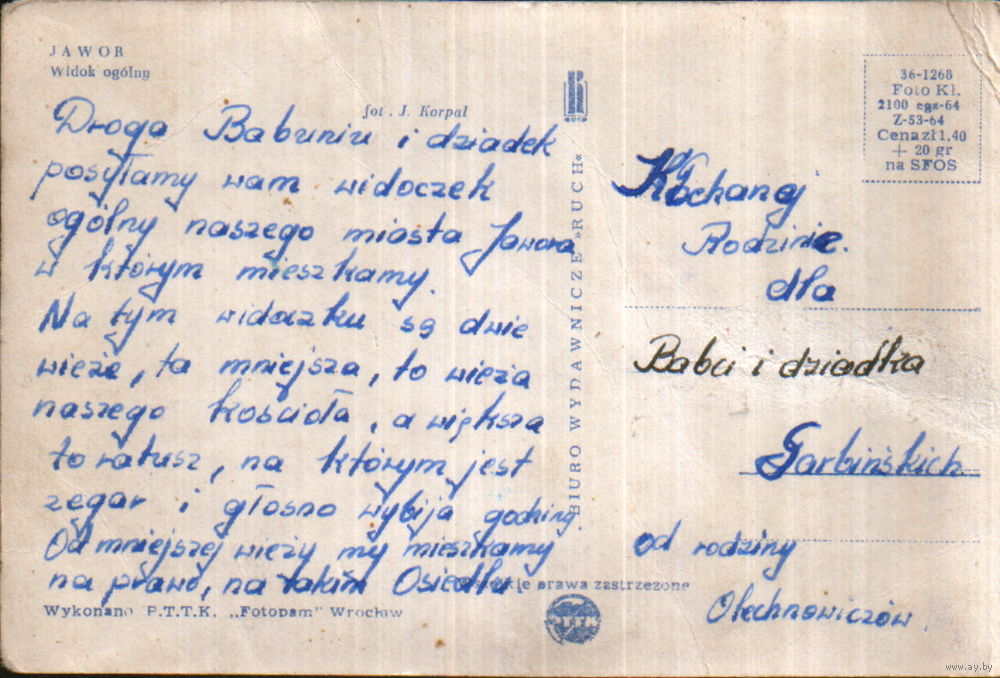 JAWOR
Widok ogólny
fot. J. Korpal
Droga Babuniu i dziadek
posyłamy wam widoczek
ogólny naszego miasta Jawora
w którym mieszkamy.
Na tym widoczku są dwie
wieże, ta mniejsza, to wieża
naszego kościoła, a większa
to ratusz, na którym jest
zegar i głośno wybija godziny.
Od mniejszej wieży my mieszkamy
na prawo, na takim Osiedlu
Wykonano P.T.T.K. „Fotopam" Wrocław
BIURO WYDAWNICZE »RUCH«
RUCH
prawa zastrzeżone
PTTK
36-1268
Foto Kł.
2100 egz-64
Z-53-64
Cena zł 1,40
+ 20 gr
na SFOS
Kochanej
Rodzinie.
dla
Babci i dziadka
Garbińskich
od rodziny
Olechnowiczów.
www.ay.by